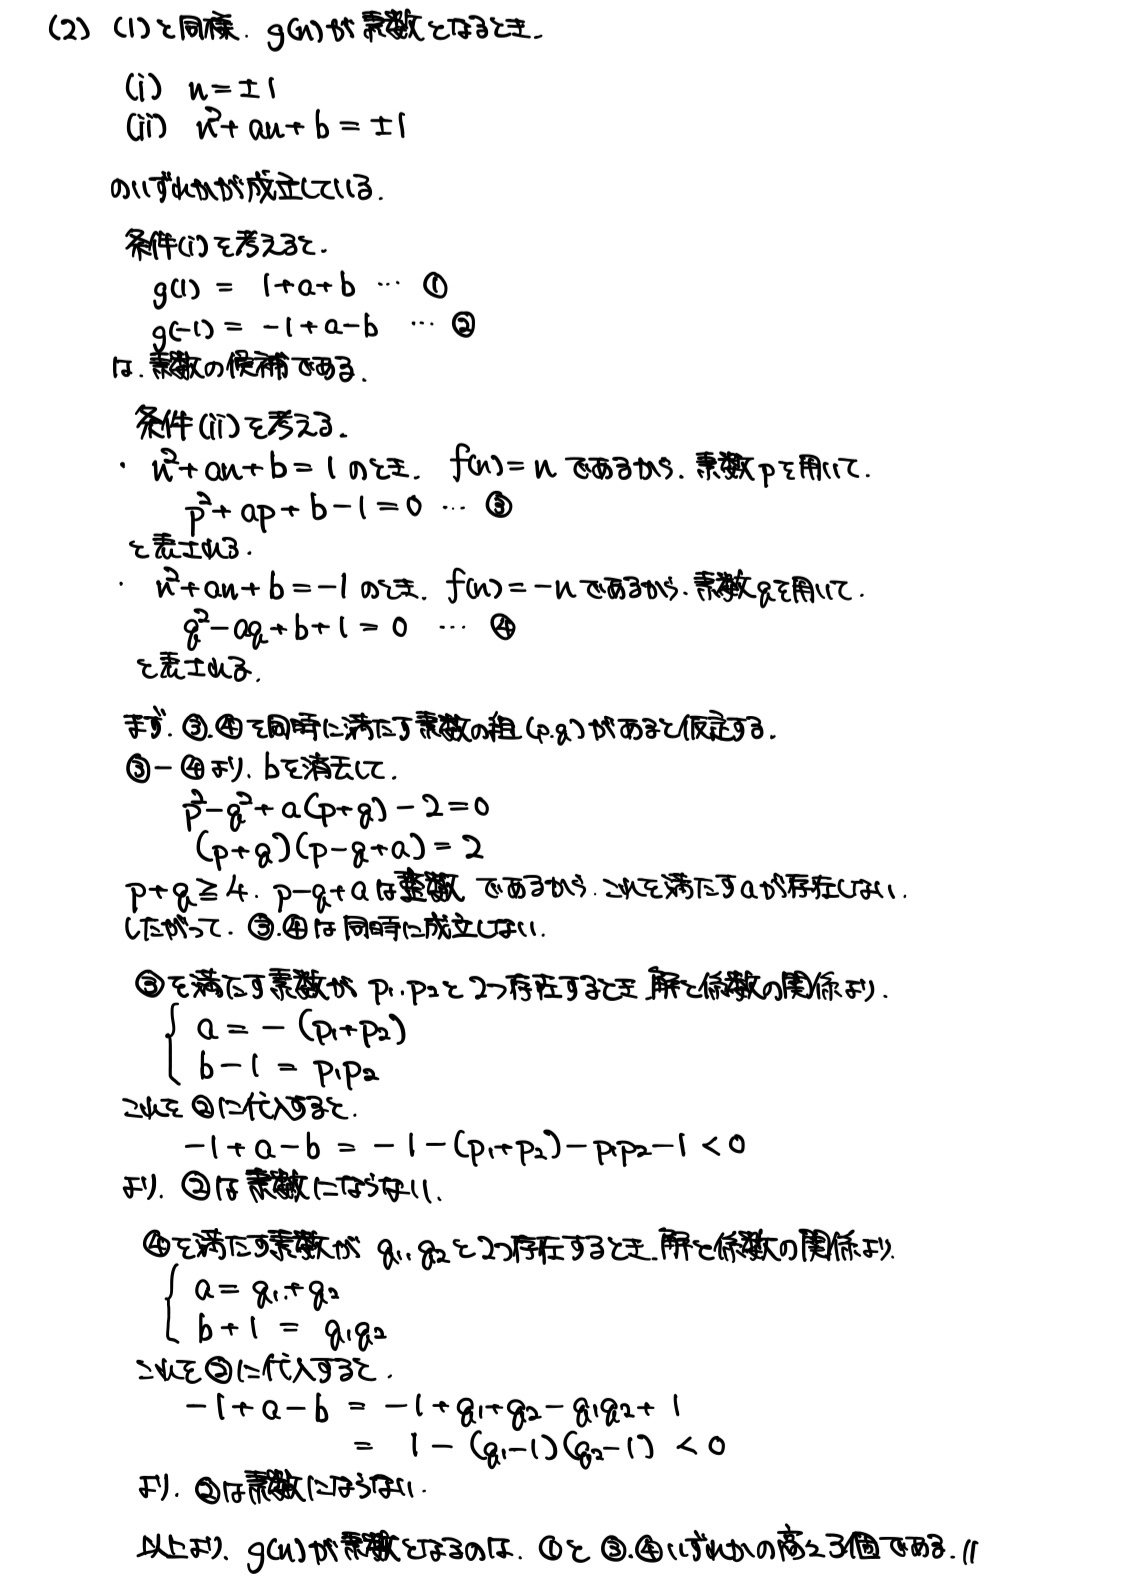 (2) (1)と同様、g(n)が素数となるとき、
(i) n=±1
(ii) n²+an+b=±1
のいずれかが成立している。
条件(i)を考えると、
g(1) = 1+a+b … ①
g(-1) = -1+a-b … ②
は、素数の候補である。
条件(ii)を考える。
・ n²+an+b=1 のとき、 f(n)=n であるから、素数pを用いて、
p²+ap+b-1=0 … ③
と表される。
・ n²+an+b=-1 のとき、 f(n)=-n であるから、素数qを用いて、
q²-aq+b+1=0 … ④
と表される。
まず、③、④を同時に満たす素数の組(p,q)があると仮定する。
③-④より、bを消去して、
p²-q²+a(p+q)-2=0
(p+q)(p-q+a)=2
p+q≧4、p-q+aは整数 であるから、これを満たすaが存在しない。
したがって、③、④は同時に成立しない。
③を満たす素数が p₁,p₂と2つ存在するとき、解と係数の関係より、
{ a = -(p₁+p₂)
b-1 = p₁p₂
これを②に代入すると、
-1+a-b = -1-(p₁+p₂)-p₁p₂-1<0
より、②は素数にならない。
④を満たす素数が q₁,q₂と2つ存在するとき、解と係数の関係より、
{ a = q₁+q₂
b+1 = q₁q₂
これを②に代入すると、
-1+a-b = -1+q₁+q₂-q₁q₂+1
= 1-(q₁-1)(q₂-1) <0
より、②は素数にならない。
以上より、g(n)が素数となるのは、①と③、④いずれかの高々3個である。//